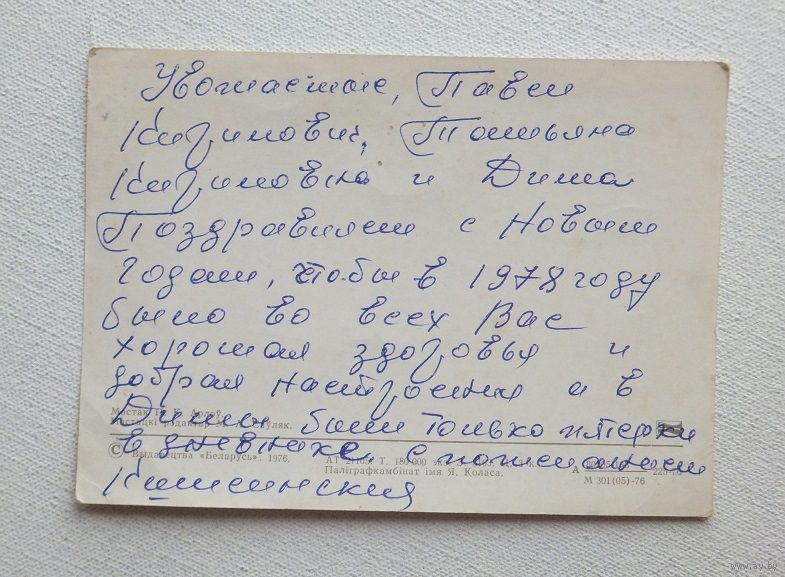 Уважаемые, Павел
Кириллович, Татьяна
Кирилловна и Дима
Поздравляем с Новым
годам, чтобы в 1978 году
было во всех Вас
хорошая здоровья и
добрая настроения а в
Димы были только пятерки
в дневнике с пожеланием
Мастак П. К. Арлоў
Мастацкі рэдактар М. Стуляк.
© Выдавецтва «Беларусь». 1976.
АТ Т. 180 000 экз.
Паліграфкамбінат імя Я. Коласа.
М 301(05)-76
www.ay.by